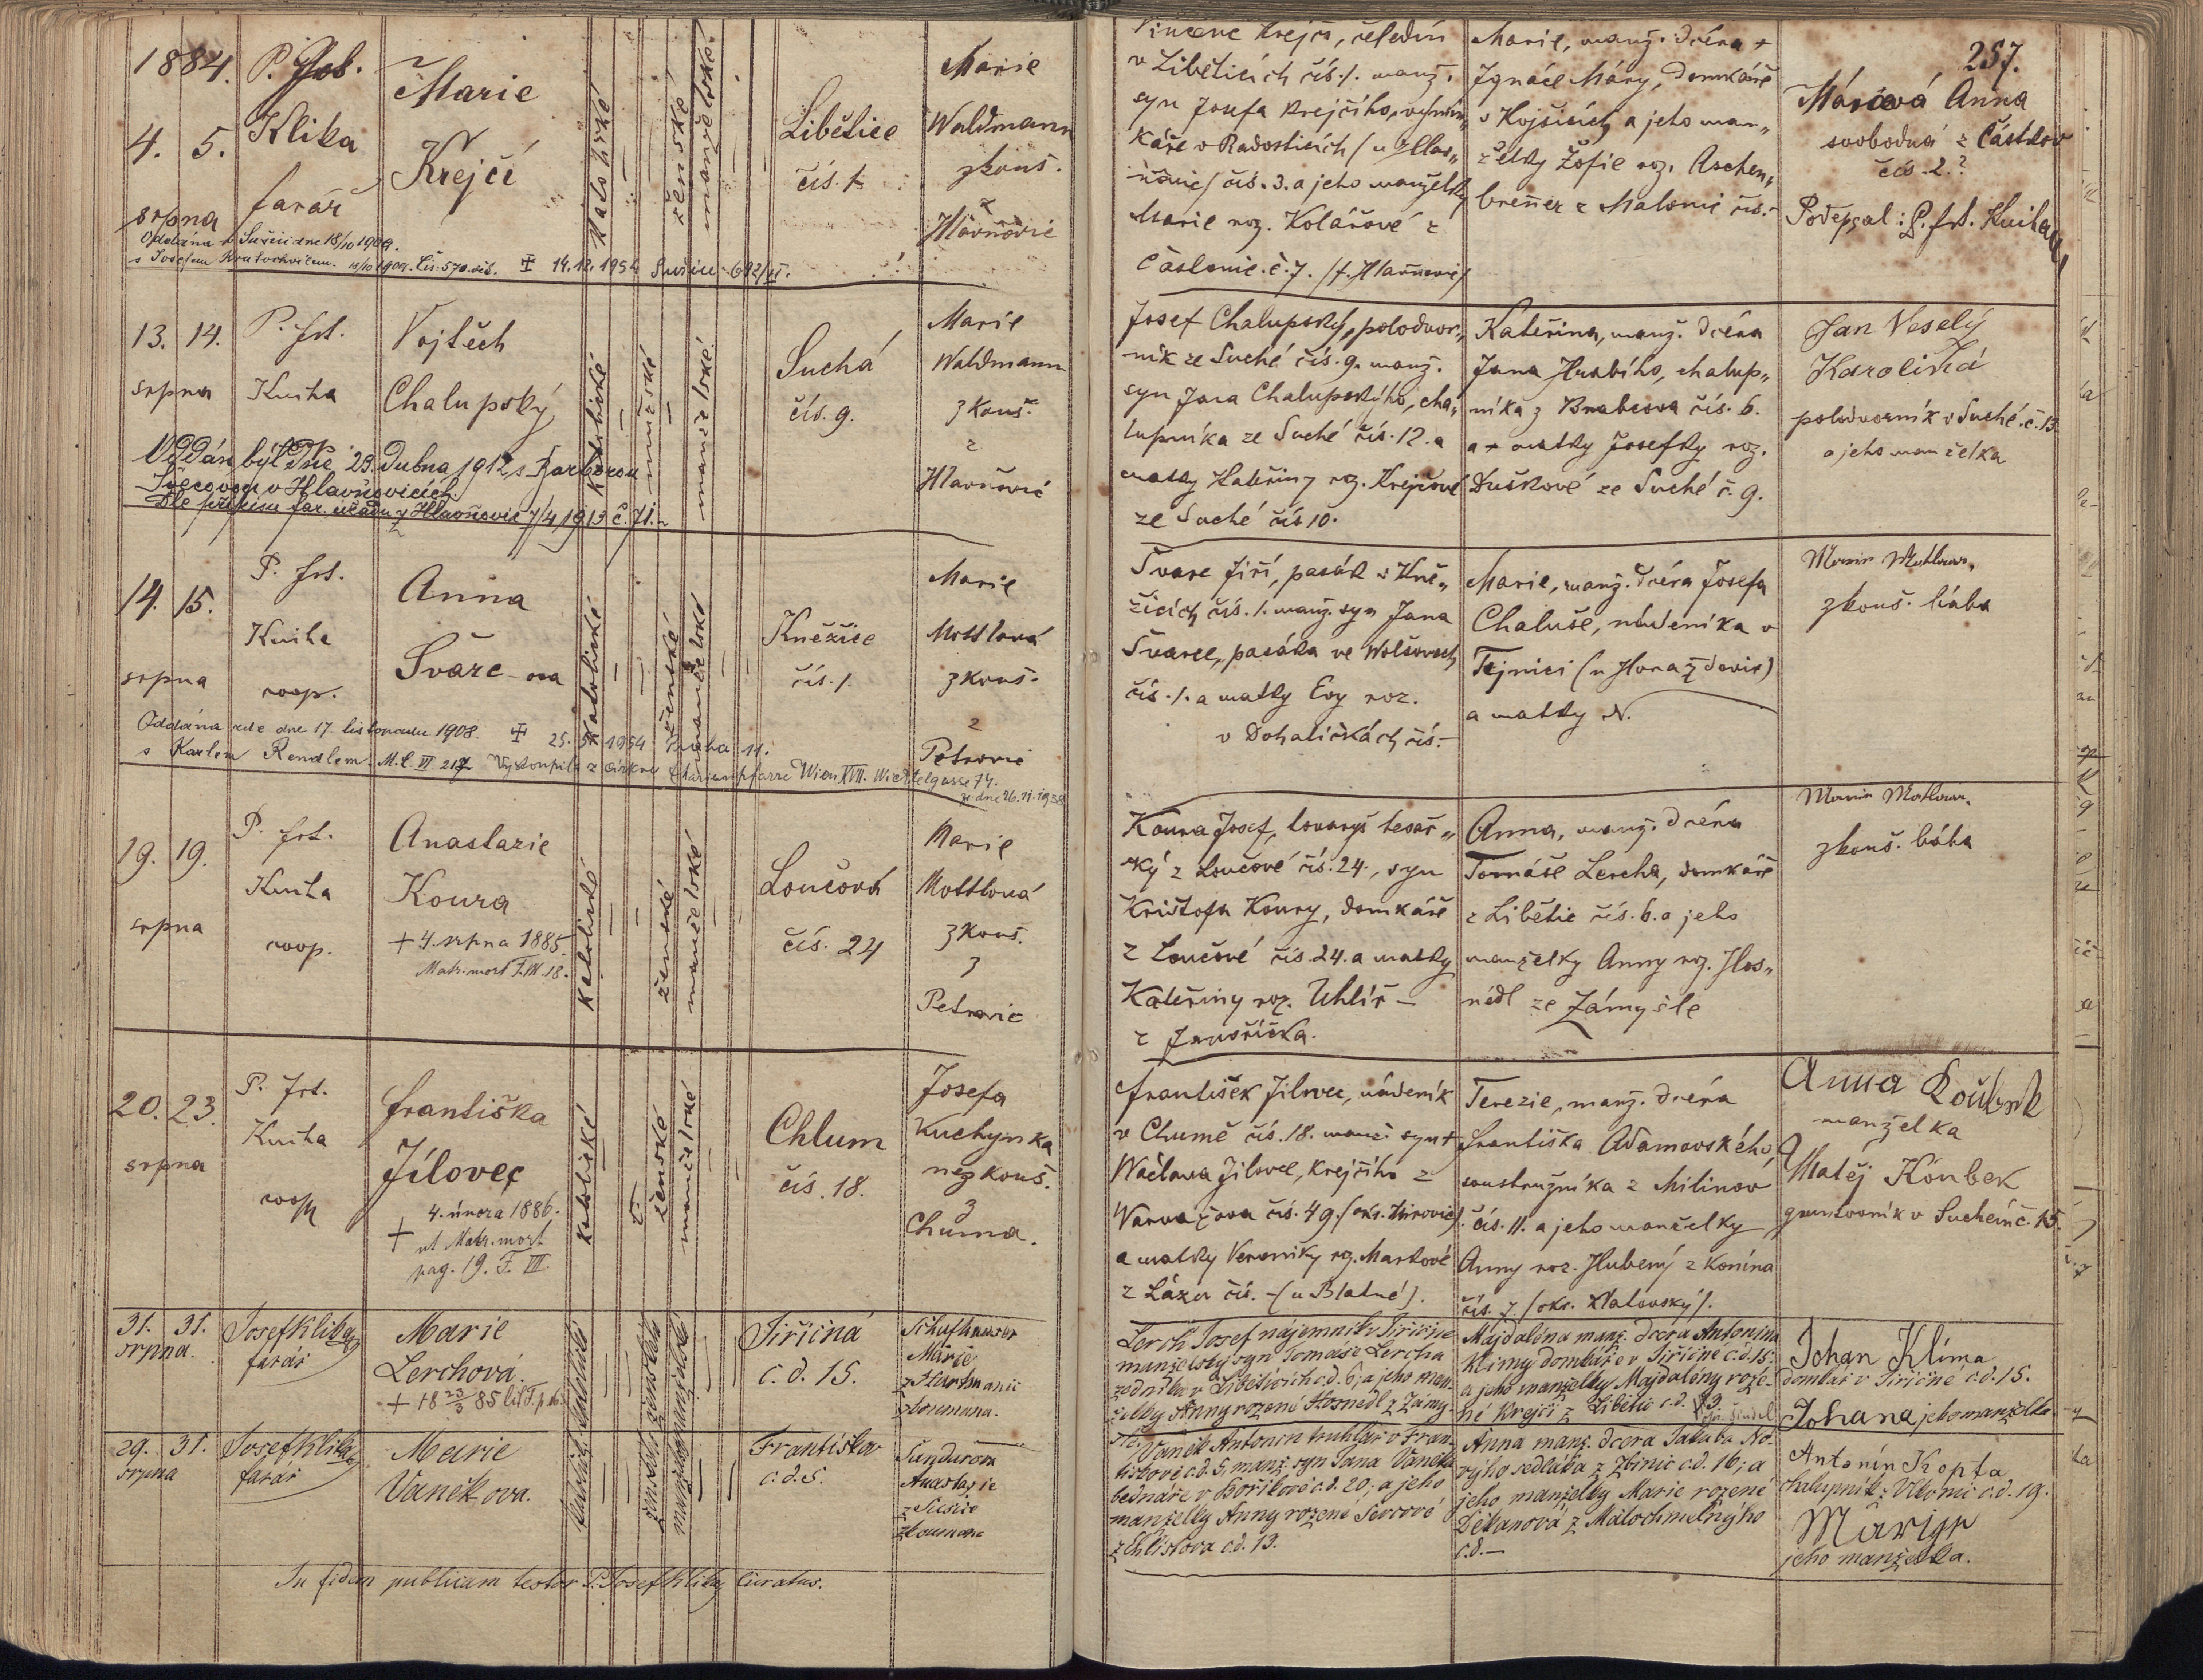 1884.
4. 5.
srpna
P. Jos.
Klika
farář
Marie
Krejčí
katolické
ženské
manželské
Libětice
čís. 1.
Marie
Waldmann
zkouš.
z
Hlavňovic
Oddána v Sušici dne 18/10 1909.
s Josefem Kratochvílem. Čís. 570. ✝ 14.12.1954 Sušice 692/II.
257.
Vincenc Krejčí, čeledín
v Liběticích čís. 1. manž.
syn Josefa Krejčího,
káře v Radosticích (u Hlav„
ňovic) čís. 3. a jeho manželky
Marie roz. Kolářové z
Částonic. č. 7. (f. Hlavňovic)
Marie, manž. dcéra +
Ignáce Máry, domkáře
v Kojšicích a jeho man„
želky Žofie roz. Aschen„
brenner z Malonic čís. –
Márová Anna
svobodná z Částkov
čís. 2.?
Podepsal: P. Frt. Kuiha
13. 14.
srpna
P. Frt.
Kuiha
Vojtěch
Chalupský
katolické
mužské
manželské
Suchá
čís. 9.
Marie
Waldmann
zkouš.
z
Hlavňovic
Oddán byl dne 23. dubna 1912 s Barborou
Švecovou v Hlavňovicích.
Dle přípisu far. úřadu z Hlavňovic 7/4 1913 č. 71.
Josef Chalupský, polodvor„
ník ze Suché čís. 9. manž.
syn Jana Chalupského, cha„
lupníka ze Suché čís. 12. a
matky Kateřiny roz. Krejčové
ze Suché čís 10.
Kateřina, manž. dcéra
Jana Hrabího, chalup„
níka z Brabcova čís. 6.
a + matky Josefky roz.
Duškové ze Suché č. 9.
Jan Veselý
Karolína
polodvorník v Suché. č. 13
a jeho manželka
14. 15.
srpna
P. Frt.
Kuiha
coop.
Anna
Švarc-ova
katolické
ženské
manželské
Kněžice
čís. 1.
Marie
Mottlová
zkouš.
z
Petrovic
Oddána zde dne 17. listopadu 1908. ✝ 25. 5. 1954 Praha 11.
s Karlem Rendlem. M.C. VI 217 Vystoupila z církve Marienpfarre Wien XVII. Wichtelgasse 74.
ze dne 26.11.1938
Švarc Jiří, pasák v Kně„
žicích čís. 1. manž. syn Jana
Švarce, pasáka ve Wolšovech
čís. 1. a matky Evy roz.
v Dohaličkách čís. –
Marie, manž. dcéra Josefa
Chaluše, nádeníka v
Tejnici (u Horažďovic)
a matky N.
Marie Mottlová
zkouš. bába
19. 19.
srpna
P. Frt.
Kuiha
coop.
Anastazie
Koura
+ 4. srpna 1885.
Matr. mort T. III. 18.
katolické
ženské
manželské
Loučová
čís. 24
Marie
Mottlová
zkouš.
z
Petrovic
Koura Josef, tovaryš tesař„
ský z Loučové čís. 24., syn
Krištofa Koury, domkáře
z Loučové čís. 24. a matky
Kateřiny roz. Uhlíř –
z Javoříčka.
Anna, manž. dcéra
Tomáše Lercha, domkáře
z Libětic čís. 6. a jeho
manželky Anny roz. Hos„
nédl ze Zámyšle
Marie Mottlová
zkouš. bába
20. 23.
srpna
P. Frt.
Kuiha
coop
Františka
Jílovec
+ 4. února 1886.
ut Matr. mort
pag. 19. T. III.
katolické
ženské
manželské
Chlum
čís. 18.
Josefa
Kuchynka
nezkouš.
z
Chuma.
František Jílovec, nádeník
v Chumě čís. 18. manž. syn +
Wáclava Jílovce, krejčího z
Warvažova čís. 49. (okr. Mirovic)
a matky Veroniky roz. Markové
z Láza čís. – (u Blatné).
Terezie, manž. dcéra
Františka Adamovského,
soustružníka z Milinov
čís. 11. a jeho manželky
Anny roz. Hlubený z Konína
čís. 7 (okr. Klatovský).
Anna Koubek
manželka
Matěj Koubek
gruntovník v Suchém č. 15.
31. 31.
srpna.
Josef Klika
farář
Marie
Lerchová.
+ 18 23/3 85 lit. T. p 16.
Jiřičná
č. d. 15.
Marie
z Hartmanic
zkoumaná.
Lerch Josef nájemník v Jiřičné
manželský syn Tomáše Lercha
zedníka v Liběticích č.d. 6; a jeho man-
želky Anny rozené Hosnedl z Zámy-
šle.
Majdalena manž. dcera Antonína
Klímy domkáře v Jiřičné č.d. 15;
a jeho manželky Majdalény roze-
né Krejčí z Libětic č.d. 3.
Johan Klíma
domkář v Jiřičné č.d. 15.
Johana jeho manželka
29. 31.
srpna
Josef Klika
farář
Marie
Vaněkova.
Františkov
č. d. 5.
Šundurova
Anastazie
z Sušice
zkoumaná
Vaněk Antonin truhlář v Fran-
tiškově č.d. 5, manž. syn Jana Vaňka
bednáře v Bořikově č.d. 20; a jeho
manželky Anny rozené Ševcové
z Chlistova č.d. 13.
Anna manž. dcera Jakuba No-
výho sedláka z Zbinic č.d. 16; a
jeho manželky Marie rozené
Děkanová z Malochmelnýho
č.d. —
Antonín Kropta
chalupník z Vlkonic č.d. 19.
Marie
jeho manželka.
In fidem publicam testor P. Josef Klika Curatus.